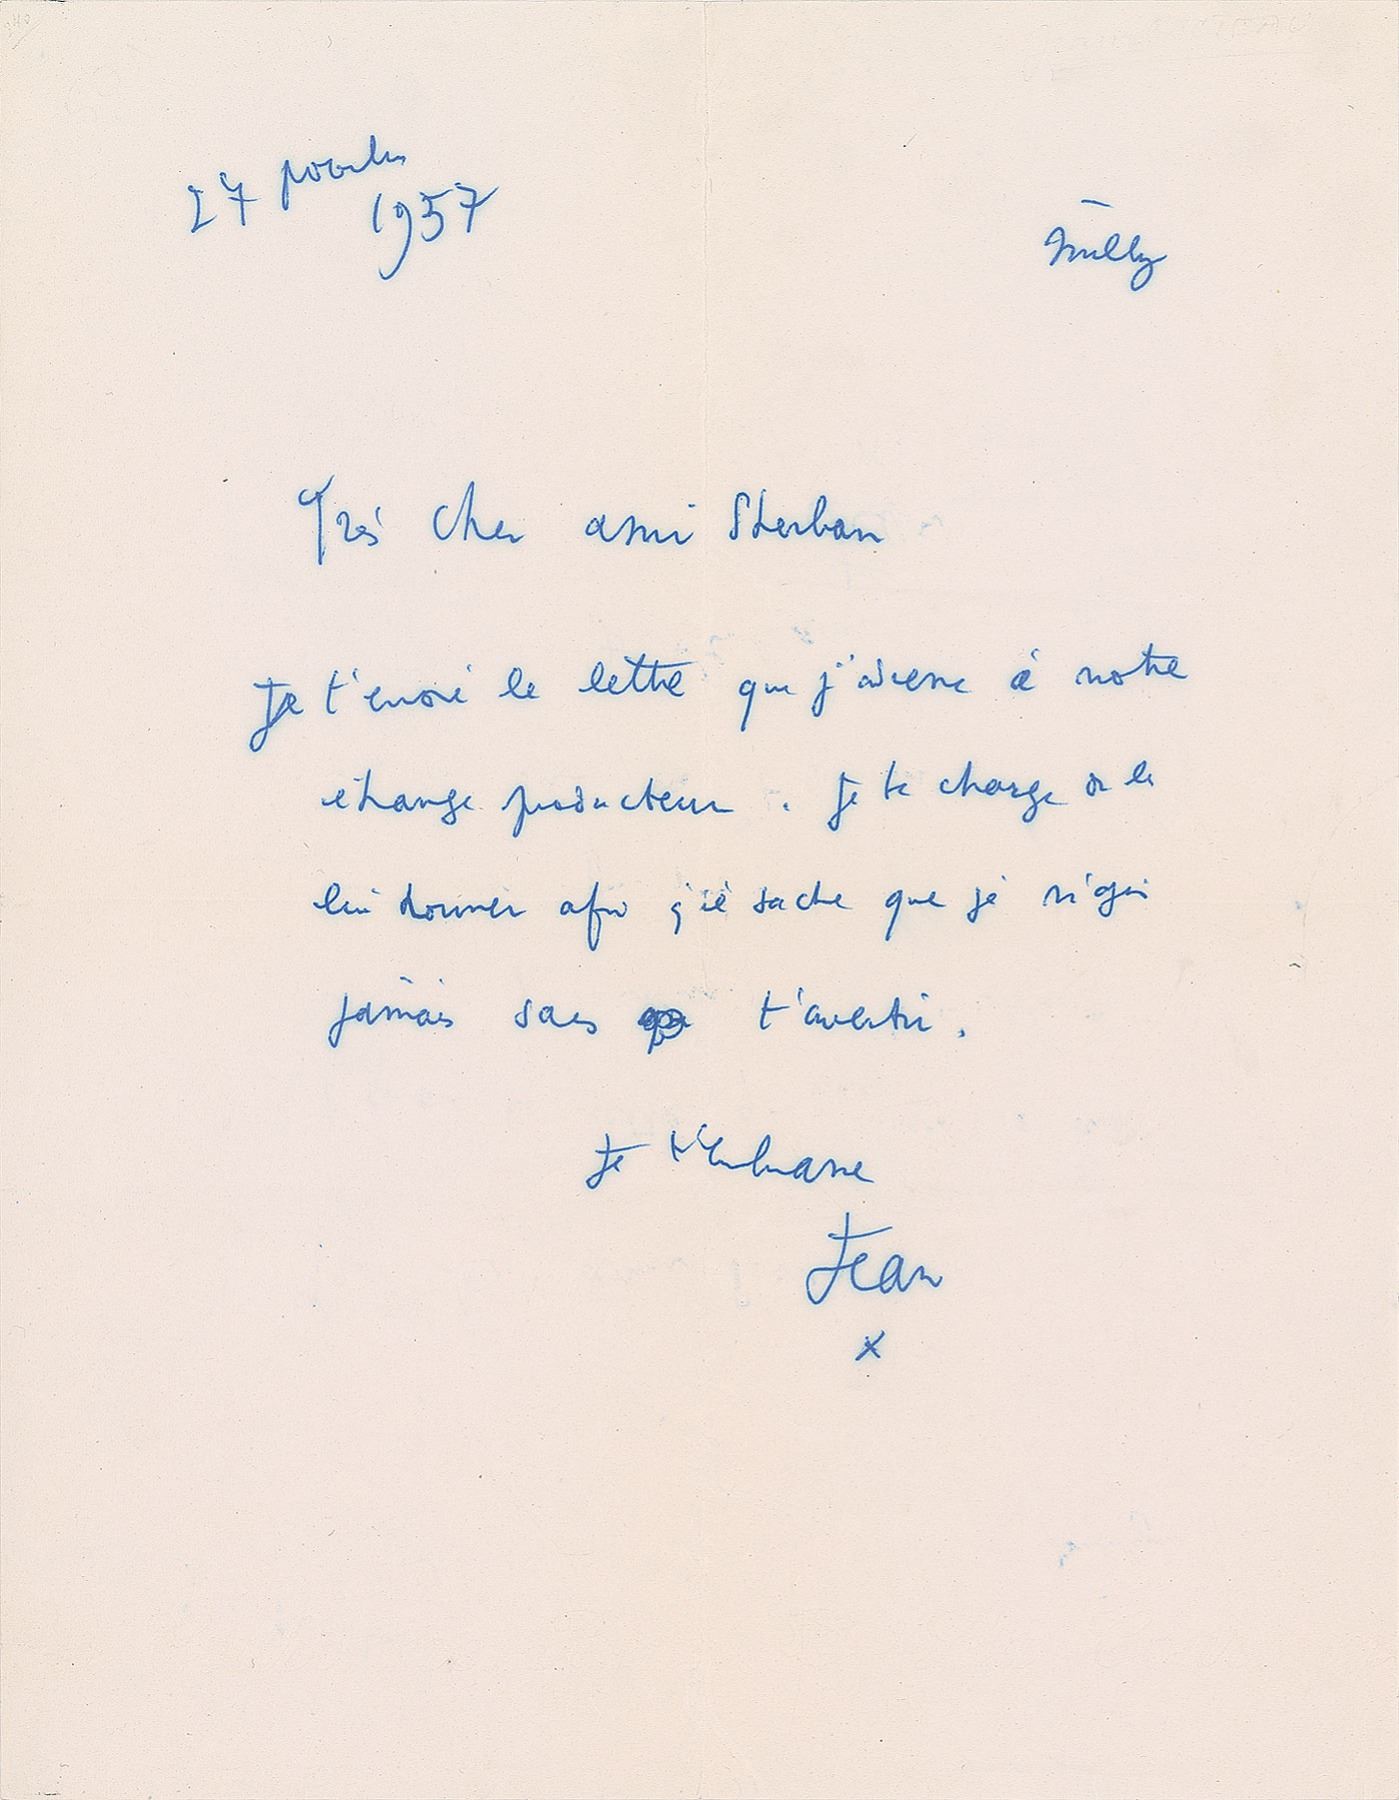 27 novembre
1957
Milly
Très cher ami Sterban
Je t'envoie la lettre que j'adresse à notre
étrange producteur. Je te charge de la
lui donner afin q'il sache que je n'agis
jamais sans t'avertir.
Je t'embrasse
Jean
x